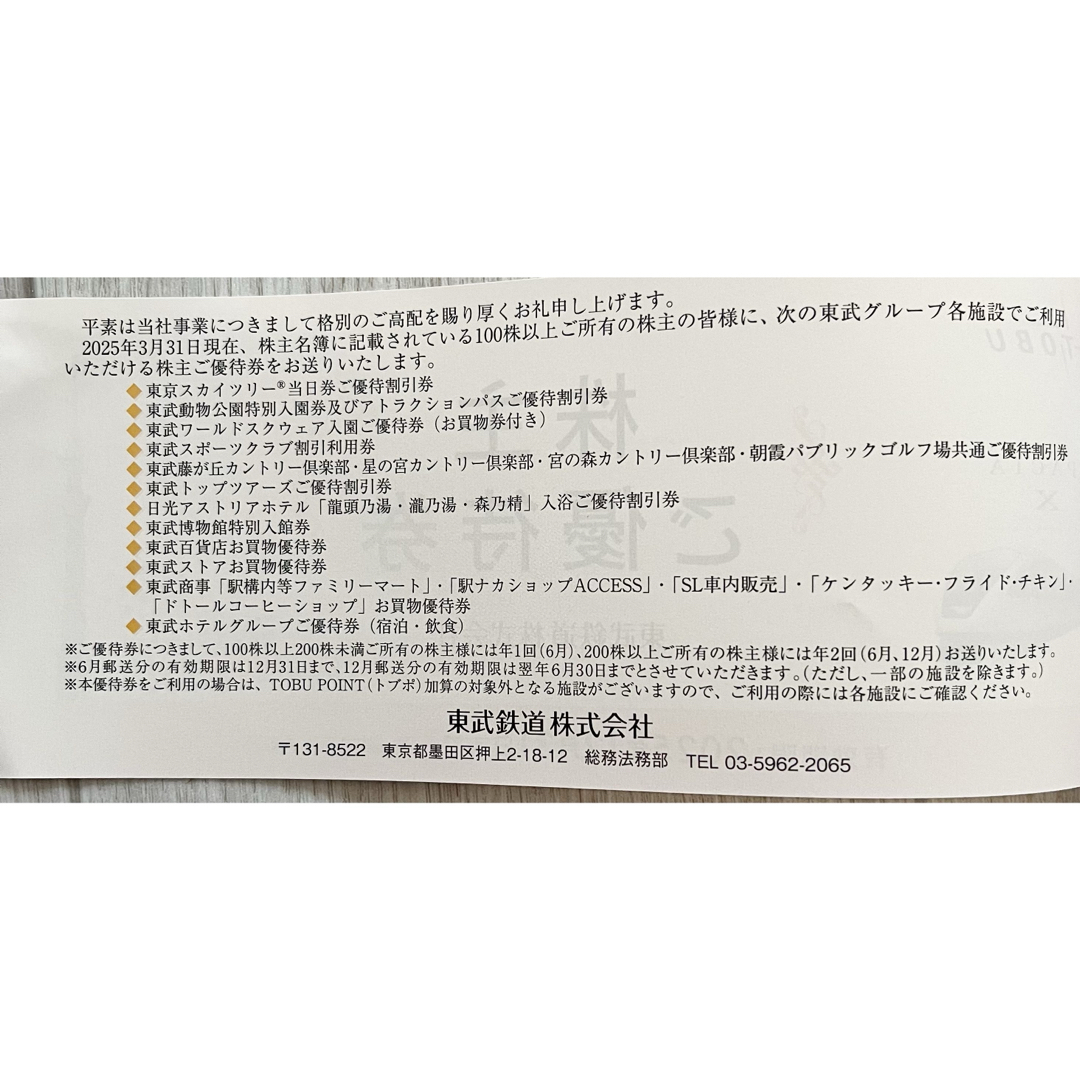 平素は当社事業につきまして格別のご高配を賜り厚くお礼申し上げます。
2025年3月31日現在、株主名簿に記載されている100株以上ご所有の株主の皆様に、次の東武グループ各施設でご利用
いただける株主ご優待券をお送りいたします。
◆東京スカイツリー®当日券ご優待割引券
◆東武動物公園特別入園券及びアトラクションパスご優待割引券
◆東武ワールドスクウェア入園ご優待券（お買物券付き）
◆東武スポーツクラブ割引利用券
◆東武藤が丘カントリー倶楽部・星の宮カントリー倶楽部・宮の森カントリー倶楽部・朝霞パブリックゴルフ場共通ご優待割引券
◆東武トップツアーズご優待割引券
◆日光アストリアホテル「龍頭乃湯・瀧乃湯・森乃精」入浴ご優待割引券
◆東武博物館特別入館券
◆東武百貨店お買物優待券
◆東武ストアお買物優待券
◆東武商事「駅構内等ファミリーマート」・「駅ナカショップACCESS」・「SL車内販売」・「ケンタッキー・フライド・チキン」・
「ドトールコーヒーショップ」お買物優待券
◆東武ホテルグループご優待券（宿泊・飲食）
※ご優待券につきまして、100株以上200株未満ご所有の株主様には年1回（6月）、200株以上ご所有の株主様には年2回（6月、12月）お送りいたします。
※6月郵送分の有効期限は12月31日まで、12月郵送分の有効期限は翌年6月30日までとさせていただきます。（ただし、一部の施設を除きます。）
※本優待券をご利用の場合は、TOBU POINT（トブポ）加算の対象外となる施設がございますので、ご利用の際には各施設にご確認ください。
東武鉄道株式会社
〒131-8522　東京都墨田区押上2-18-12　総務法務部　TEL 03-5962-2065
株主
ご優待券
東武鉄道株式会社
TOBU